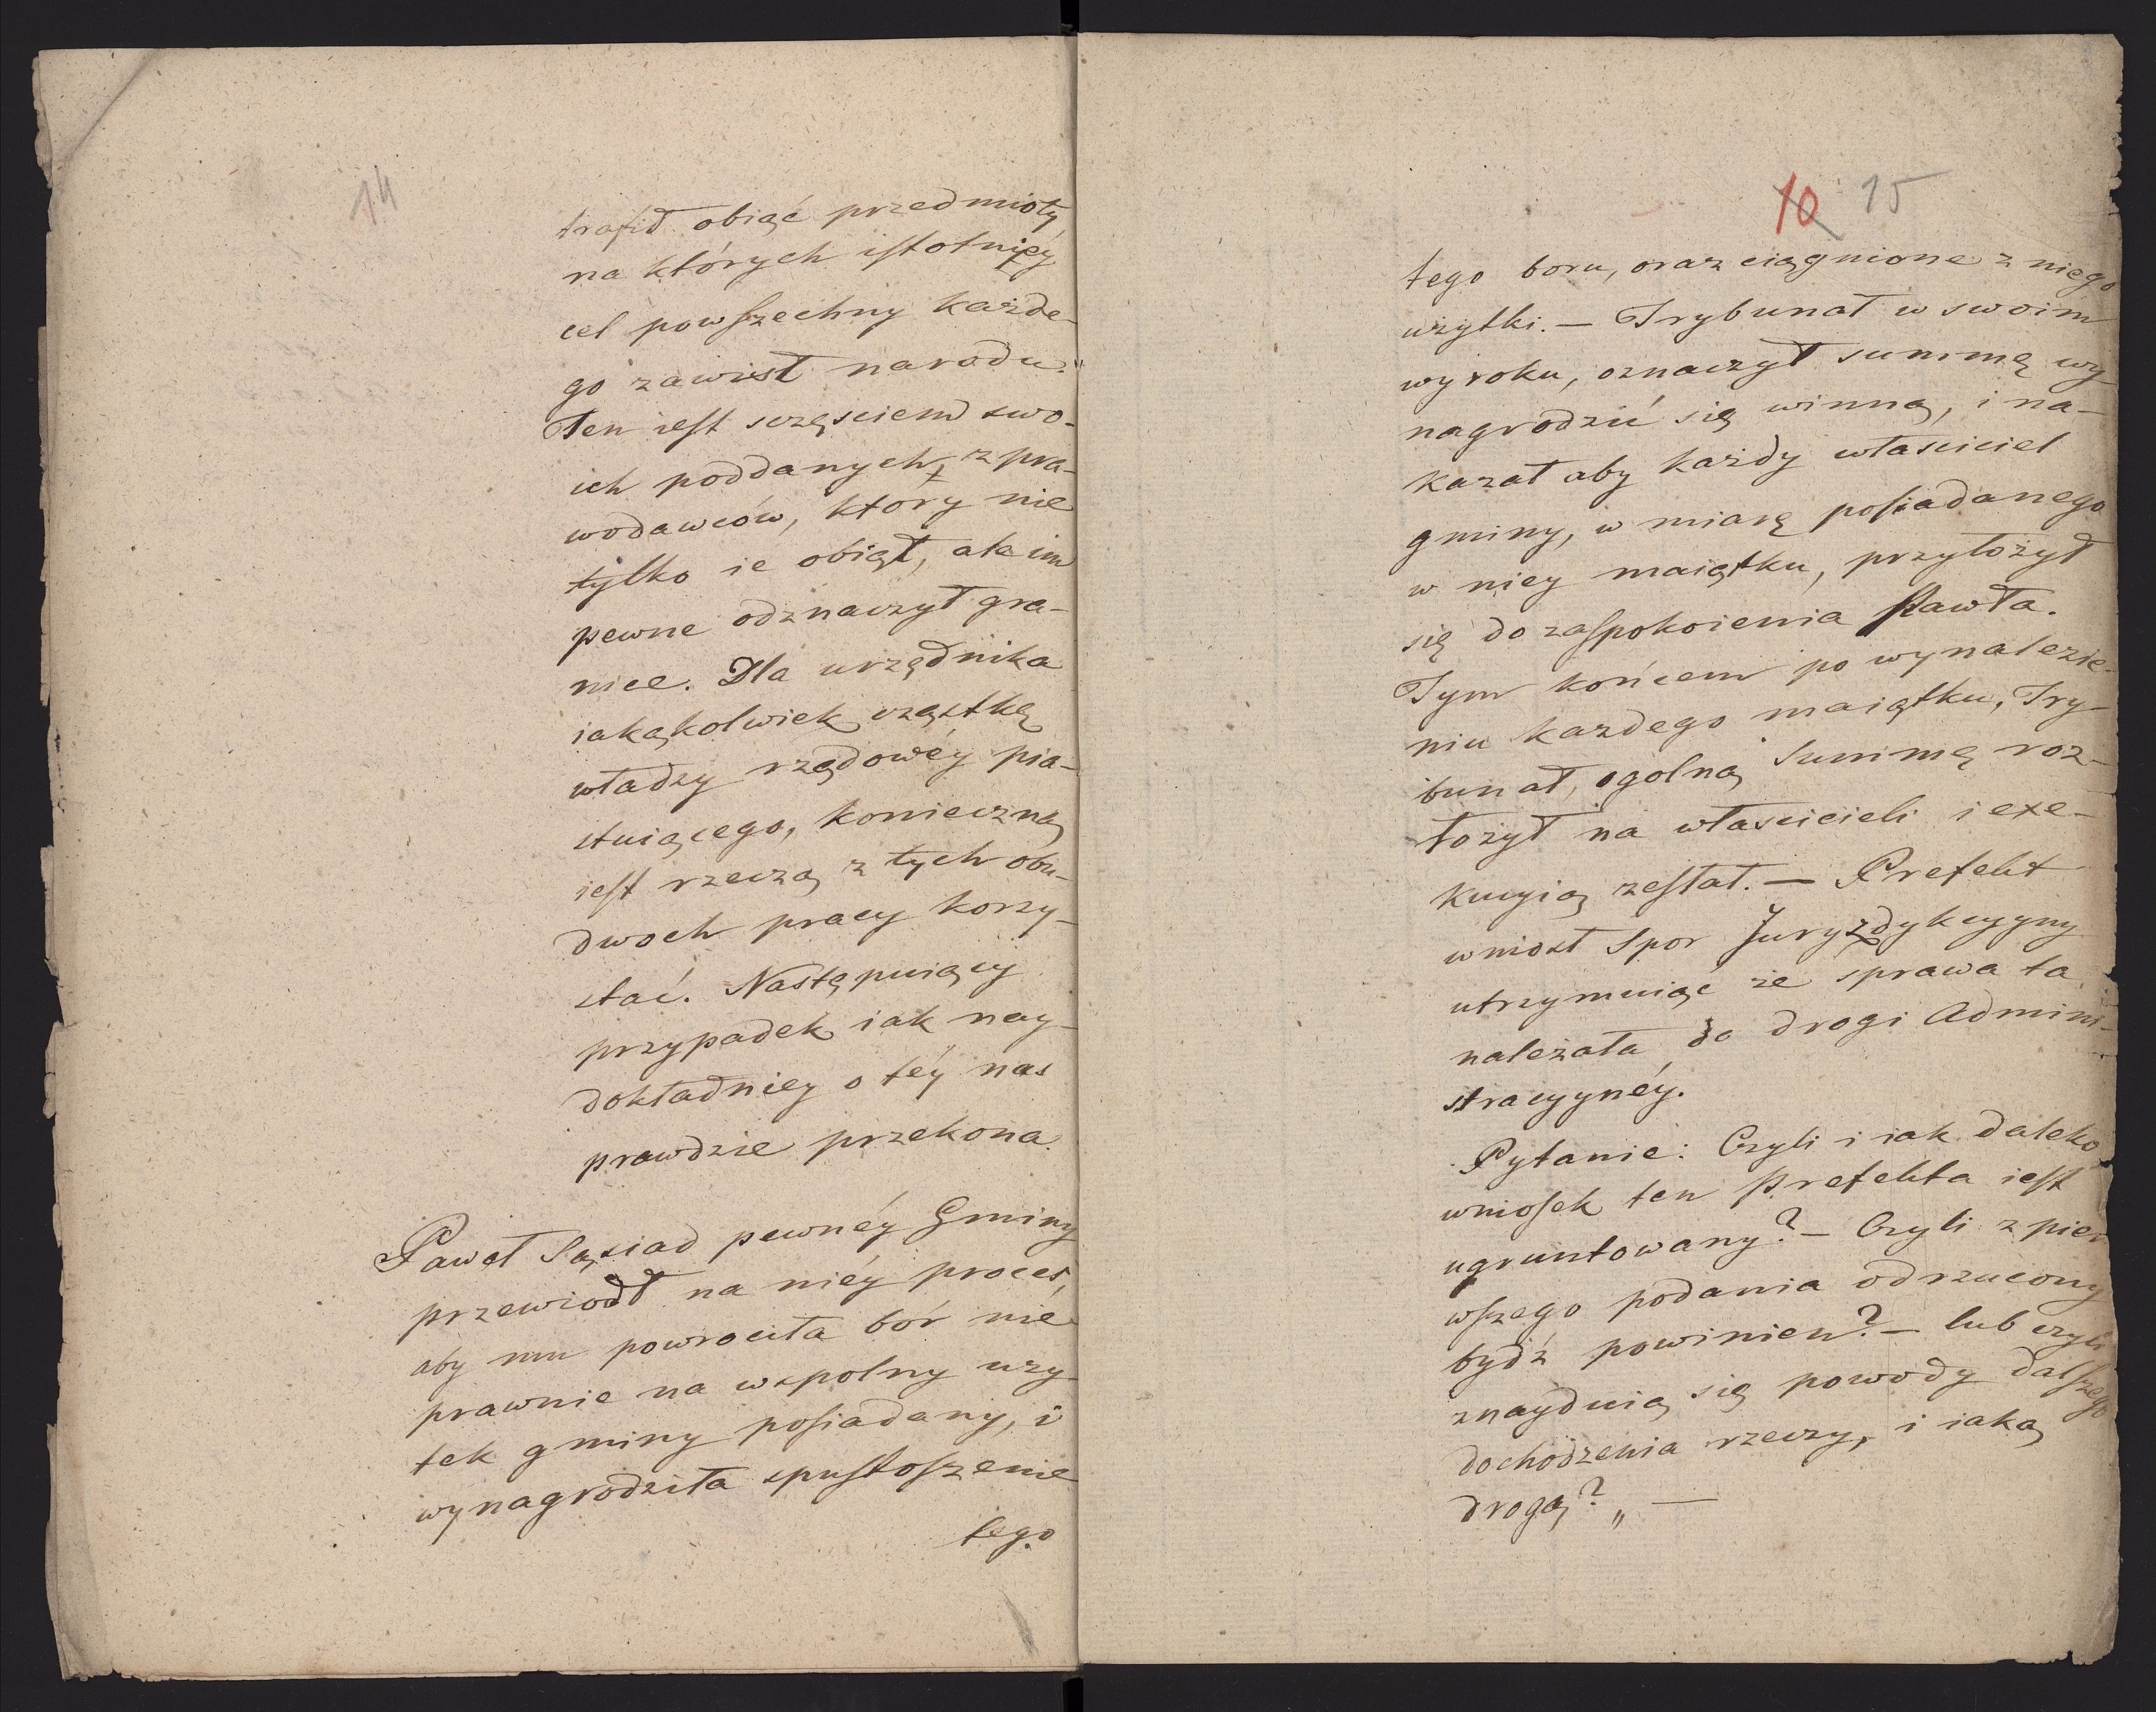 14
trafił obiąć przedmioty
na których istotniéy
cel powszechny każde-
go zawisł narodu."
Ten iest sczęściem swo-
ich poddanych, z pra-
wodawców, który nie
tylko ie obiął, ale im
pewne odznaczył gra-
nice. Dla urzędnika
iakąkolwiek cząstkę
władzy rządowéy pia-
stuiącego, konieczną
iest rzeczą z tych obu-
dwoch pracy korzy-
stać. Następuiący
przypadek iak nay-
dokładniey o téy nas
prawdzie przekona.
Paweł Sąsiad pewnéy Gminy
przewiodł na niéy proces,
aby mu powrociła bór nie
prawnie na wspolny uży-
tek gminy posiadany, i
wynagrodziła spustoszenie
tego
10 15
tego boru, oraz ciągnione z niego
użytki. — Trybunał w swoim
wyroku, oznaczył summę wy-
nagrodzić się winną, i na-
kazał aby każdy właściciel
gminy, w miarę posiadanego
w niey maiątku, przyłożył
się do zaspokoienia Pawła.
Tym końcem po wynalezie-
niu każdego maiątku, Try-
bunał, ogolną Summę roz-
łożył na właścicieli i exe-
kucyią zesłał. — Prefekt
wniosł Spor Juryzdykcyyny
utrzymuiąc że sprawa ta
należała do drogi Admini-
stracyynéy.
Pytanie: Czyli i iak daleko
wniosek ten Prefekta iest
ugruntowany? — Czyli z pier
wszego podania odrzucony
bydź powinien? — lub czyli
znayduią się powody dalszego
dochodzenia rzeczy, i iaką
drogą? „ —